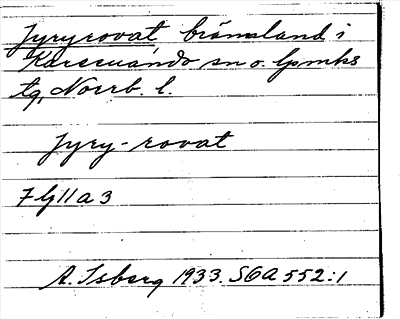 Jyryrovat brännland i
Karesuando sn o. lpmks
tg, Norrb. l.
Jyry-rovat
7 lj 11 a 3
A. Isberg 1933. SOA 552:1